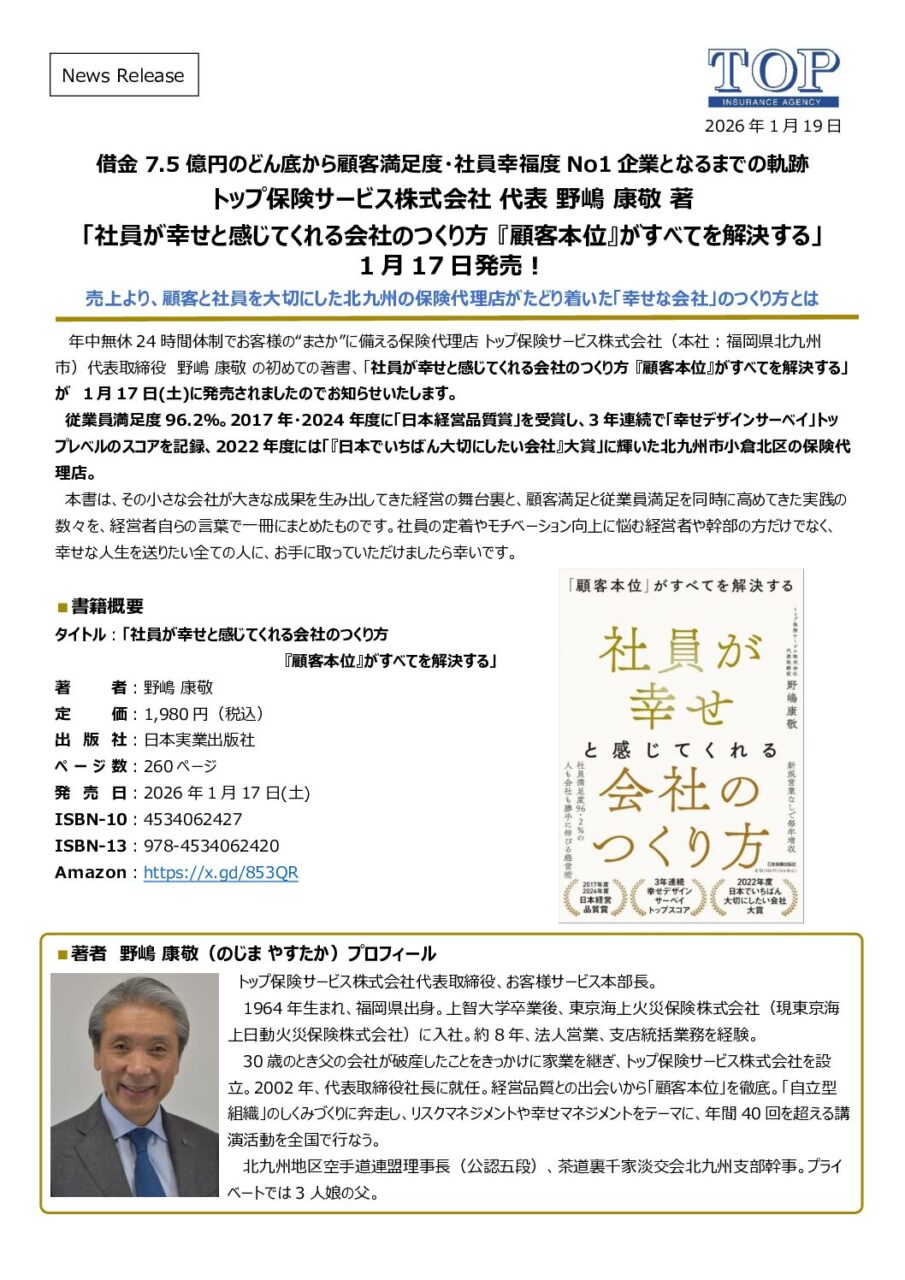 News Release
TOP
INSURANCE AGENCY
2026年1月19日
借金 7.5 億円のどん底から顧客満足度・社員幸福度 No1 企業となるまでの軌跡
トップ保険サービス株式会社 代表 野嶋 康敬 著
「社員が幸せと感じてくれる会社のつくり方『顧客本位』がすべてを解決する」
1月17日発売！
売上より、顧客と社員を大切にした北九州の保険代理店がたどり着いた「幸せな会社」のつくり方とは
年中無休24時間体制でお客様の“まさか”に備える保険代理店 トップ保険サービス株式会社（本社：福岡県北九州
市）代表取締役 野嶋 康敬 の初めての著書、「社員が幸せと感じてくれる会社のつくり方『顧客本位』がすべてを解決する」
が 1月17日(土)に発売されましたのでお知らせいたします。
従業員満足度 96.2%。2017 年・2024 年度に「日本経営品質賞」を受賞し、3 年連続で「幸せデザインサーベイ」トッ
プレベルのスコアを記録、2022 年度には「『日本でいちばん大切にしたい会社』大賞」に輝いた北九州市小倉北区の保険代
理店。
本書は、その小さな会社が大きな成果を生み出してきた経営の舞台裏と、顧客満足と従業員満足を同時に高めてきた実践の
数々を、経営者自らの言葉で一冊にまとめたものです。社員の定着やモチベーション向上に悩む経営者や幹部の方だけでなく、
幸せな人生を送りたい全ての人に、お手に取っていただけましたら幸いです。
■書籍概要
タイトル：「社員が幸せと感じてくれる会社のつくり方
『顧客本位』がすべてを解決する」
著 者：野嶋 康敬
定 価：1,980円（税込）
出 版 社：日本実業出版社
ページ数：260ページ
発 売 日：2026年1月17日(土)
ISBN-10：4534062427
ISBN-13：978-4534062420
Amazon：https://x.gd/853QR
「顧客本位」がすべてを解決する
トップ保険サービス株式会社
代表取締役
野嶋康敬
社員が
幸せ
と感じてくれる
会社の
つくり方
新規営業なしで毎年増収
社員満足度96・2％の
人も会社も勝手に伸びる経営術
日本実業出版社
2017年度
2024年度
日本経営
品質賞
3年連続
幸せデザイン
サーベイ
トップスコア
2022年度
日本でいちばん
大切にしたい会社
大賞
■著者 野嶋 康敬（のじま やすたか）プロフィール
トップ保険サービス株式会社代表取締役、お客様サービス本部長。
1964年生まれ、福岡県出身。上智大学卒業後、東京海上火災保険株式会社（現東京海
上日動火災保険株式会社）に入社。約8年、法人営業、支店統括業務を経験。
30歳のとき父の会社が破産したことをきっかけに家業を継ぎ、トップ保険サービス株式会社を設
立。2002年、代表取締役社長に就任。経営品質との出会いから「顧客本位」を徹底。「自立型
組織」のしくみづくりに奔走し、リスクマネジメントや幸せマネジメントをテーマに、年間40回を超える講
演活動を全国で行なう。
北九州地区空手道連盟理事長（公認五段）、茶道裏千家淡交会北九州支部幹事。プライ
ベートでは3人娘の父。